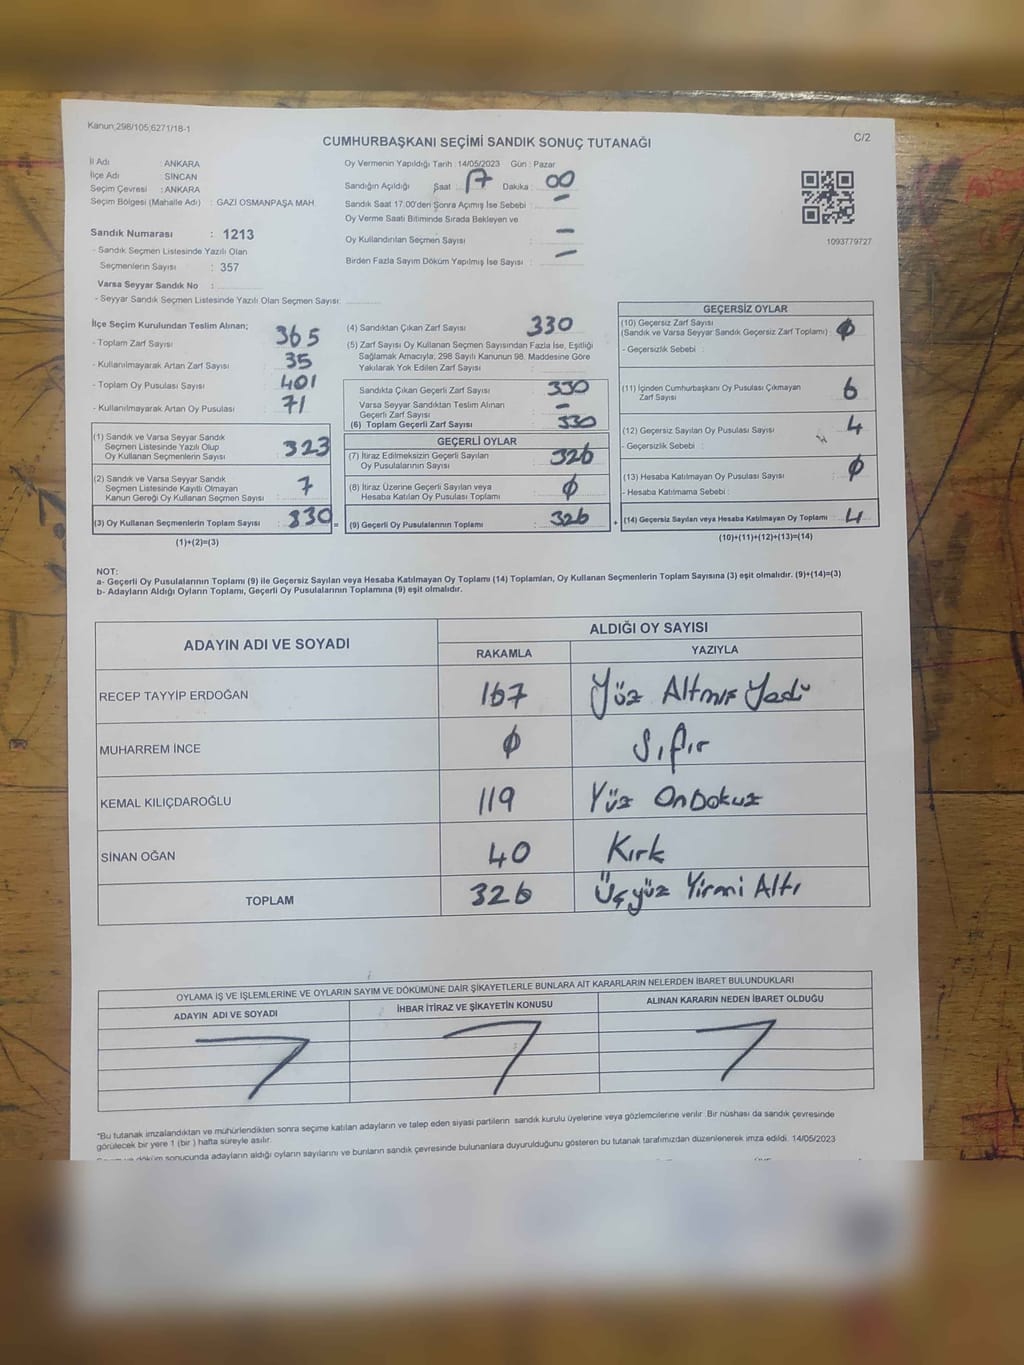 Kanun;298/105;6271/18-1
C/2
CUMHURBAŞKANI SEÇİMİ SANDIK SONUÇ TUTANAĞI
İl Adı : ANKARA
İlçe Adı : SİNCAN
Seçim Çevresi : ANKARA
Seçim Bölgesi (Mahalle Adı) : GAZİ OSMANPAŞA MAH.
Sandık Numarası : 1213
- Sandık Seçmen Listesinde Yazılı Olan
Seçmenlerin Sayısı : 357
Varsa Seyyar Sandık No :
- Seyyar Sandık Seçmen Listesinde Yazılı Olan Seçmen Sayısı:
Oy Vermenin Yapıldığı Tarih :14/05/2023 Gün : Pazar
Sandığın Açıldığı Saat : 17 Dakika : 00
Sandık Saat 17.00'den Sonra Açımış İse Sebebi : -
Oy Verme Saati Bitiminde Sırada Bekleyen ve
Oy Kullandırılan Seçmen Sayısı : -
Birden Fazla Sayım Döküm Yapılmış İse Sayısı : -
1093779727
İlçe Seçim Kurulundan Teslim Alınan;
- Toplam Zarf Sayısı : 365
- Kullanılmayarak Artan Zarf Sayısı : 35
- Toplam Oy Pusulası Sayısı : 401
- Kullanılmayarak Artan Oy Pusulası : 71
(1) Sandık ve Varsa Seyyar Sandık
Seçmen Listesinde Yazılı Olup
Oy Kullanan Seçmenlerin Sayısı : 323
(2) Sandık ve Varsa Seyyar Sandık
Seçmen Listesinde Kayıtlı Olmayan
Kanun Gereği Oy Kullanan Seçmen Sayısı : 7
(3) Oy Kullanan Seçmenlerin Toplam Sayısı : 330 =
(1)+(2)=(3)
(4) Sandıktan Çıkan Zarf Sayısı : 330
(5) Zarf Sayısı Oy Kullanan Seçmen Sayısından Fazla İse, Eşitliği
Sağlamak Amacıyla, 298 Sayılı Kanunun 98. Maddesine Göre
Yakılarak Yok Edilen Zarf Sayısı :
Sandıkta Çıkan Geçerli Zarf Sayısı : 330
Varsa Seyyar Sandıktan Teslim Alınan
Geçerli Zarf Sayısı : -
(6) Toplam Geçerli Zarf Sayısı : 330
GEÇERLİ OYLAR
(7) İtiraz Edilmeksizin Geçerli Sayılan
Oy Pusulalarının Sayısı : 326
(8) İtiraz Üzerine Geçerli Sayılan veya
Hesaba Katılan Oy Pusulası Toplamı : 0
(9) Geçerli Oy Pusulalarının Toplamı : 326 +
GEÇERSİZ OYLAR
(10) Geçersiz Zarf Sayısı
(Sandık ve Varsa Seyyar Sandık Geçersiz Zarf Toplamı) : 0
- Geçersizlik Sebebi :
(11) İçinden Cumhurbaşkanı Oy Pusulası Çıkmayan
Zarf Sayısı : 6
(12) Geçersiz Sayılan Oy Pusulası Sayısı : 4
- Geçersizlik Sebebi :
(13) Hesaba Katılmayan Oy Pusulası Sayısı : 0
- Hesaba Katılmama Sebebi :
(14) Geçersiz Sayılan veya Hesaba Katılmayan Oy Toplamı : 4
(10)+(11)+(12)+(13)=(14)
NOT:
a- Geçerli Oy Pusulalarının Toplamı (9) ile Geçersiz Sayılan veya Hesaba Katılmayan Oy Toplamı (14) Toplamları, Oy Kullanan Seçmenlerin Toplam Sayısına (3) eşit olmalıdır. (9)+(14)=(3)
b- Adayların Aldığı Oyların Toplamı, Geçerli Oy Pusulalarının Toplamına (9) eşit olmalıdır.
ADAYIN ADI VE SOYADI
ALDIĞI OY SAYISI
RAKAMLA YAZIYLA
RECEP TAYYİP ERDOĞAN 167 Yüz Altmış Yedi
MUHARREM İNCE 0 Sıfır
KEMAL KILIÇDAROĞLU 119 Yüz OnDokuz
SİNAN OĞAN 40 Kırk
TOPLAM 326 Üçyüz Yirmi Altı
OYLAMA İŞ VE İŞLEMLERİNE VE OYLARIN SAYIM VE DÖKÜMÜNE DAİR ŞİKAYETLERLE BUNLARA AİT KARARLARIN NELERDEN İBARET BULUNDUKLARI
ADAYIN ADI VE SOYADI İHBAR İTİRAZ VE ŞİKAYETİN KONUSU ALINAN KARARIN NEDEN İBARET OLDUĞU
*Bu tutanak imzalandıktan ve mühürlendikten sonra seçime katılan adayların ve talep eden siyasi partilerin sandık kurulu üyelerine veya gözlemcilerine verilir. Bir nüshası da sandık çevresinde
görülecek bir yere 1 (bir ) hafta süreyle asılır.
döküm sonucunda adayların aldığı oyların sayılarını ve bunların sandık çevresinde bulunanlara duyurulduğunu gösteren bu tutanak tarafımızdan düzenlenerek imza edildi. 14/05/2023